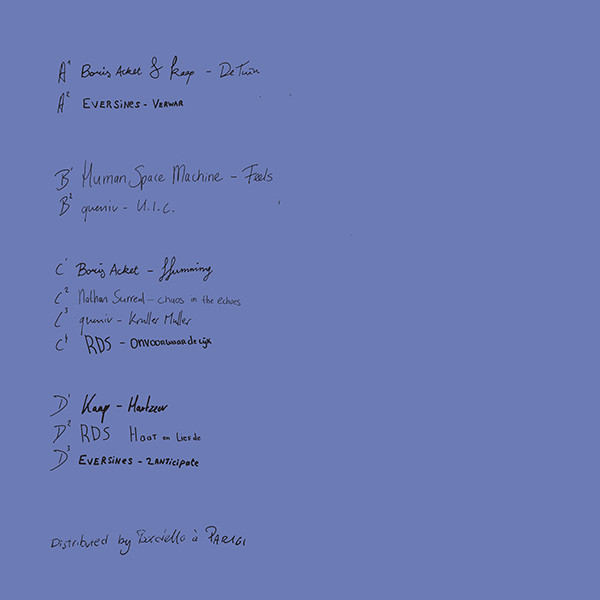 A1 Boris Acket & Kaap - De Tuin
A2 EVERSINES - VERWAR
B1 Human Space Machine - Feels
B2 queniv - U.I.C.
C1 Boris Acket - Humming
C2 Nathan Surreal - chaos in the echoes
C3 queniv - Kroller Muller
C4 RDS - ONVOORWAARDELIJK
D1 Kaap - Hartzeer
D2 RDS Haat en Liefde
D3 EVERSINES - 2ANTICIPATE
Distributed by à PARIGI